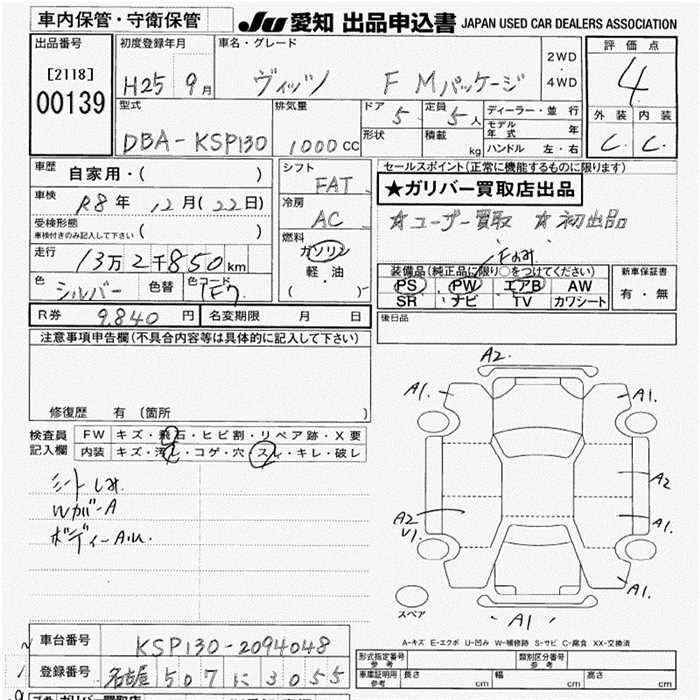 車内保管・守衛保管
JU 愛知 出品申込書 JAPAN USED CAR DEALERS ASSOCIATION
出品番号
[2118]
00139
初度登録年月
H25 9月
車名・グレード
ヴィッツ F Mパッケージ
2WD
4WD
評価点
4
外装 内装
C C
型式
DBA-KSP130
排気量
1000cc
ドア 5
定員 5人
形状
積載 kg
ディーラー・並行
モデル年式 年
ハンドル 左・右
車歴
自家用・( )
車検
R8年 12月(22日)
受検形態
車検付きのみ記入して下さい ( )
走行
13万2千850km
色
シルバー
色替
色コード
1F7
シフト
FAT
冷房
AC
燃料
ガソリン
軽・油
( )
セールスポイント(正常に機能するものに限ります)
★ガリバー買取店出品
☆ユーザー買取 ☆初出品
Fのみ
装備品(純正品に限り○をつけてください)
PS PW エアB AW
SR ナビ TV カワシート
新車保証書
有・無
R券 9,840円
名変期限 月 日
後日品
注意事項申告欄(不具合内容等は具体的に記入して下さい)
修復歴 有 (箇所 )
検査員記入欄
FW キズ・飛石・ヒビ割・リペア跡・X要
内装 キズ・汚レ・コゲ・穴・スレ・キレ・破レ
シートしみ
WカバーA
ボディーAU.
A2.
A1.
A1.
A2
A2
V1.
A1.
A1.
A1
スペア
A-キズ E-エクボ U-凹み W-補修跡 S-サビ C-腐食 XX-交換済
車台番号
KSP130-2094048
登録番号
名古屋 507 に 3055
形式指定番号 参考
類別区分番号 参考
車庫証明用 参考
長さ cm 幅 cm 高さ cm
ガリバー買取店